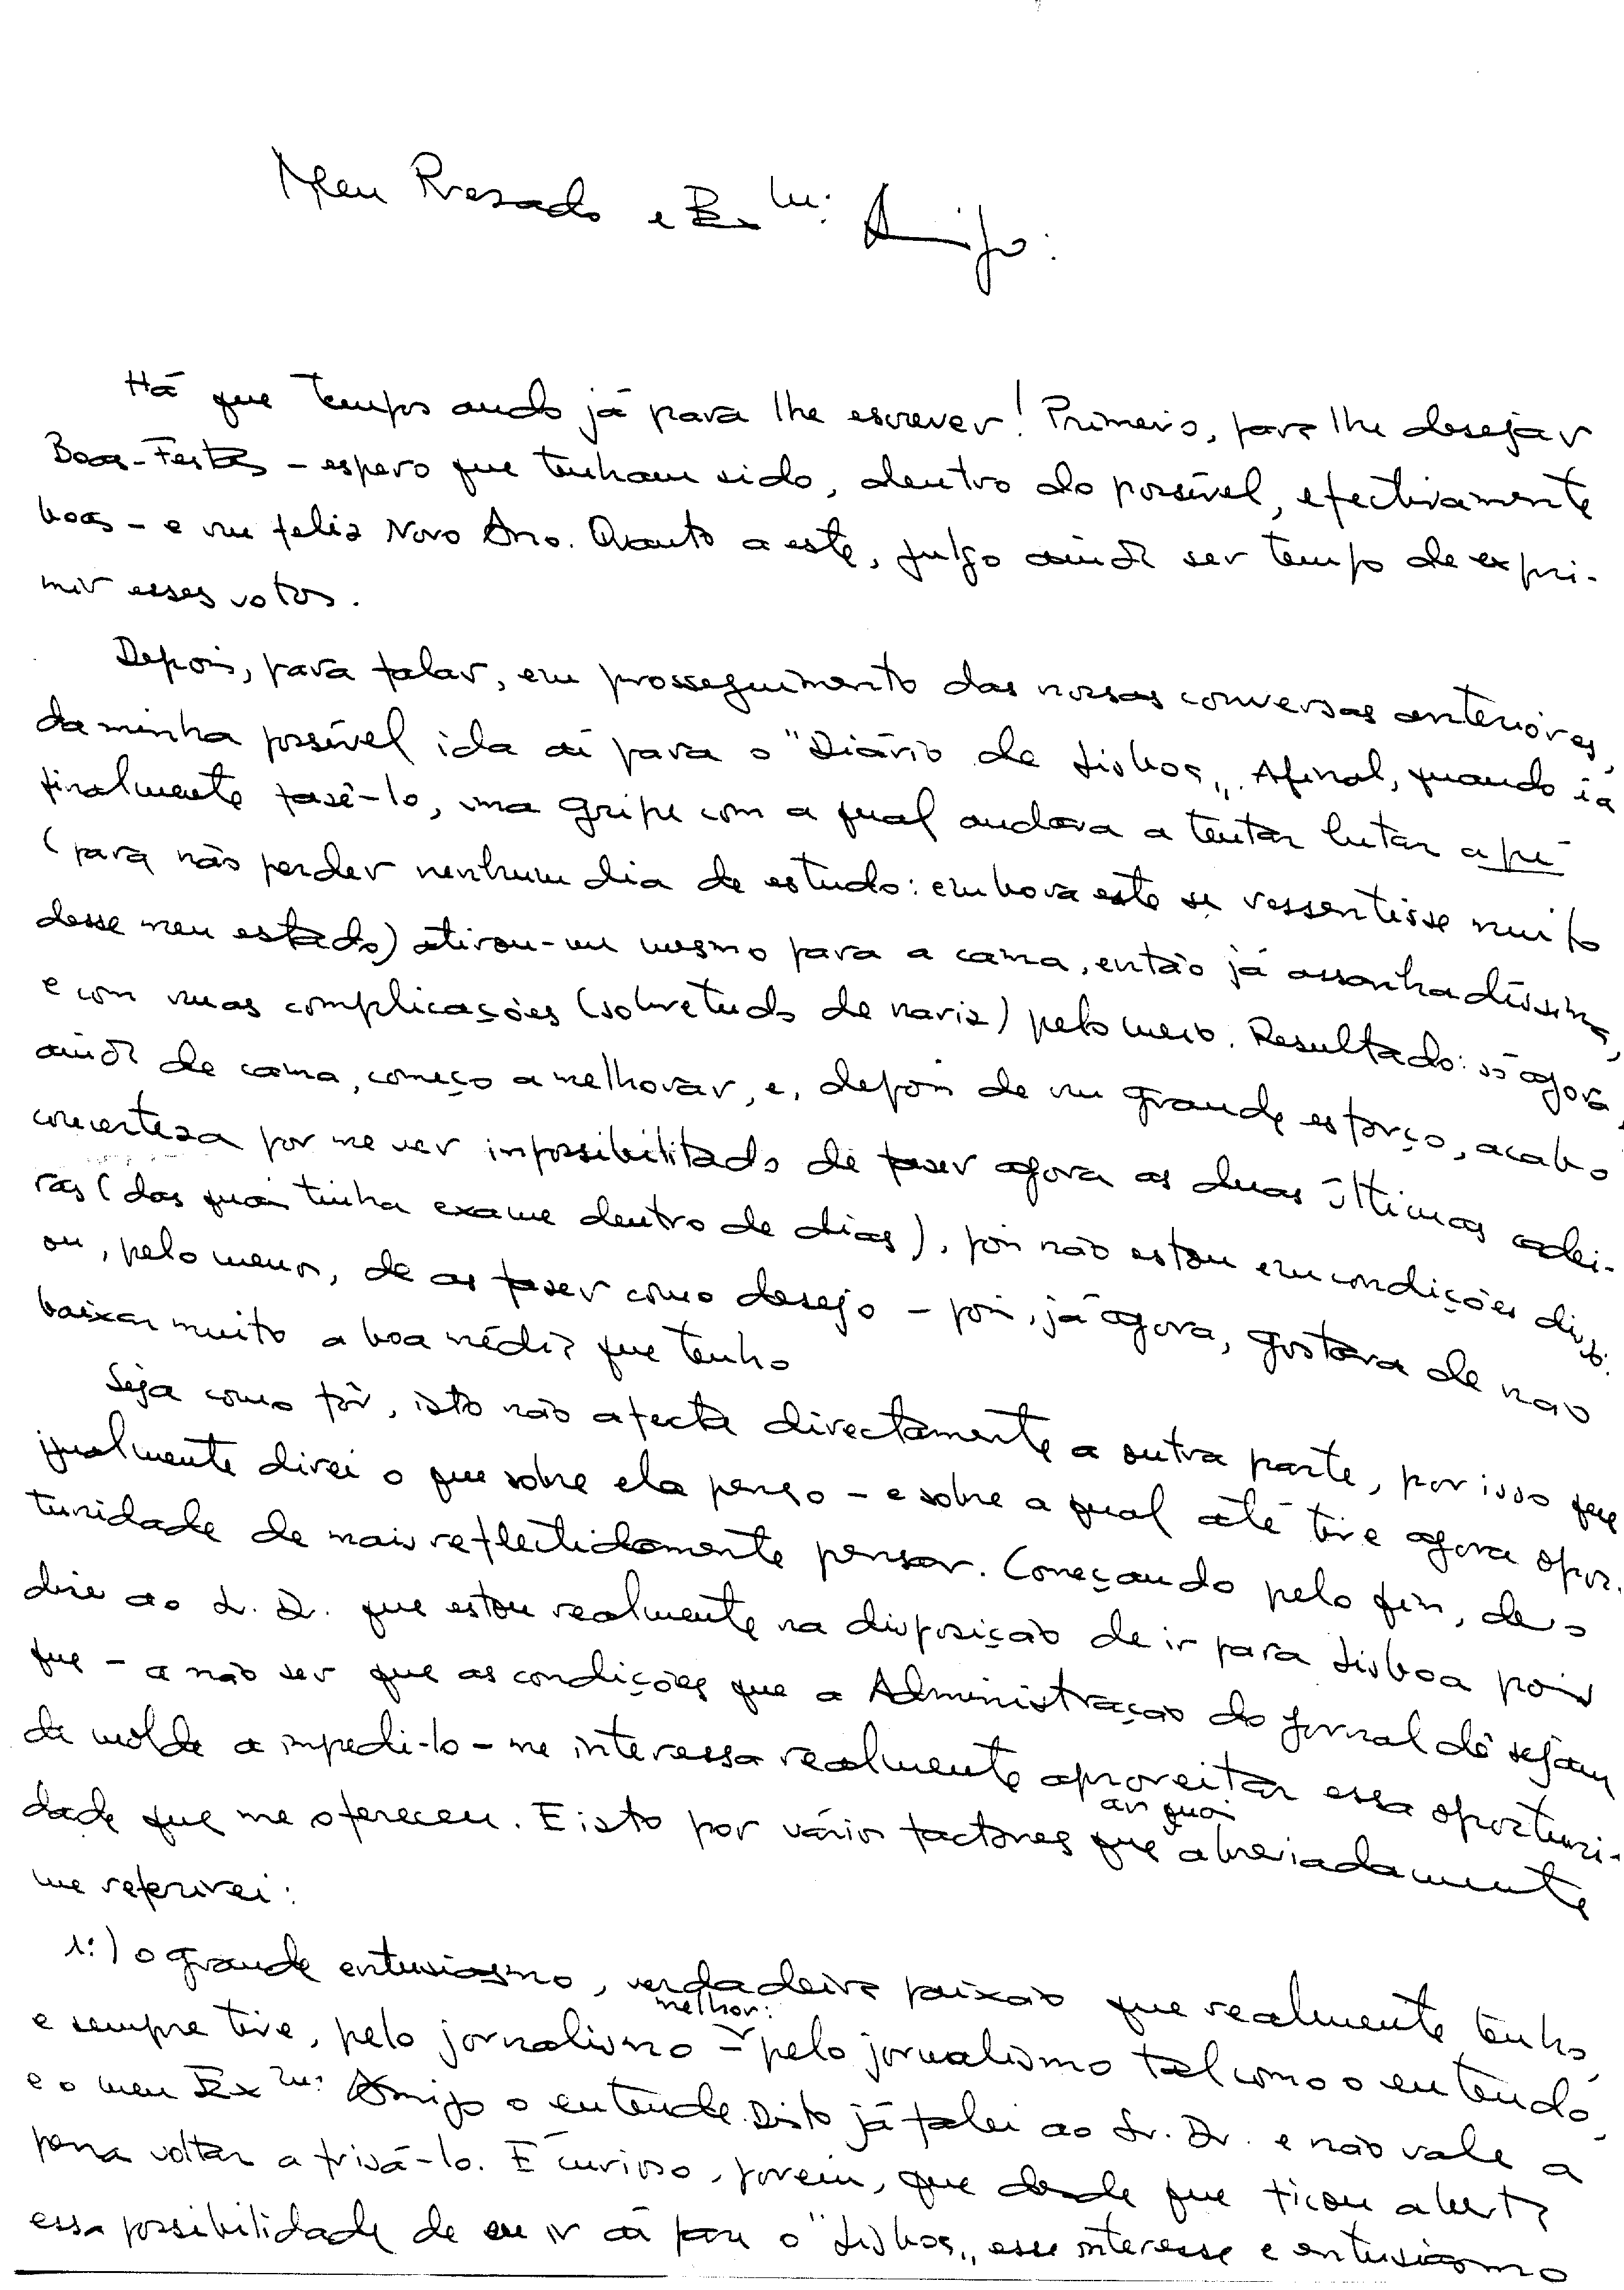 Meu Prezado e Exmº: Amigo:
Há que tempos ando já para lhe escrever! Primeiro, para lhe desejar
Boas-Festas - espero que tenham sido, dentro do possível, efectivamente
boas - e um feliz Novo Ano. Quanto a este, julgo ainda ser tempo de expri-
mir esses votos.
Depois, para falar, em prosseguimento das nossas conversas anteriores,
da minha possível ida aí para o "Diário de Lisboa". Afinal, quando ia
finalmente fazê-lo, uma gripe com a qual andava a tentar lutar a pé
(para não perder nenhum dia de estudo: embora este se ressentisse muito
desse meu estado) atirou-me mesmo para a cama, então já assanhadíssima,
e com umas complicações (sobretudo de nariz) pelo meio. Resultado: só agora,
ainda de cama, começo a melhorar, e, depois de um grande esforço, acabo
concerteza por me ver impossibilitado de fazer agora as duas últimas cadei-
ras (das quais tinha exame dentro de dias), pois não estou em condições disso:
ou, pelo menos, de as fazer como desejo - pois, já agora, gostava de não
baixar muito a boa média que tenho
Seja como fôr, isto não afecta directamente a outra parte, por isso que
igualmente direi o que sobre ela penso - e sobre a qual até tive agora opor-
tunidade de mais reflectidamente pensar. Começando pelo fim, devo
dizer ao Sr. Dr. que estou realmente na disposição de ir para Lisboa pois
que - a não ser que as condições que a Administração do jornal dê sejam
de molde a impedi-lo - me interessa realmente aproveitar essa oportuni-
dade que me ofereceu. E isto por vários factores que aos quais abreviadamente
me referirei:
1º:) o grande entusiasmo, verdadeira paixão que realmente tenho,
e sempre tive, pelo jornalismo - melhor: pelo jornalismo tal como o eu entendo,
e o meu Exmº: Amigo o entende. Disto já falei ao Sr. Dr. e não vale a
pena voltar a frisá-lo. É curioso, porém, que desde que ficou aberta
essa possibilidade de eu ir aí para o "Lisboa", esse interesse e entusiasmo